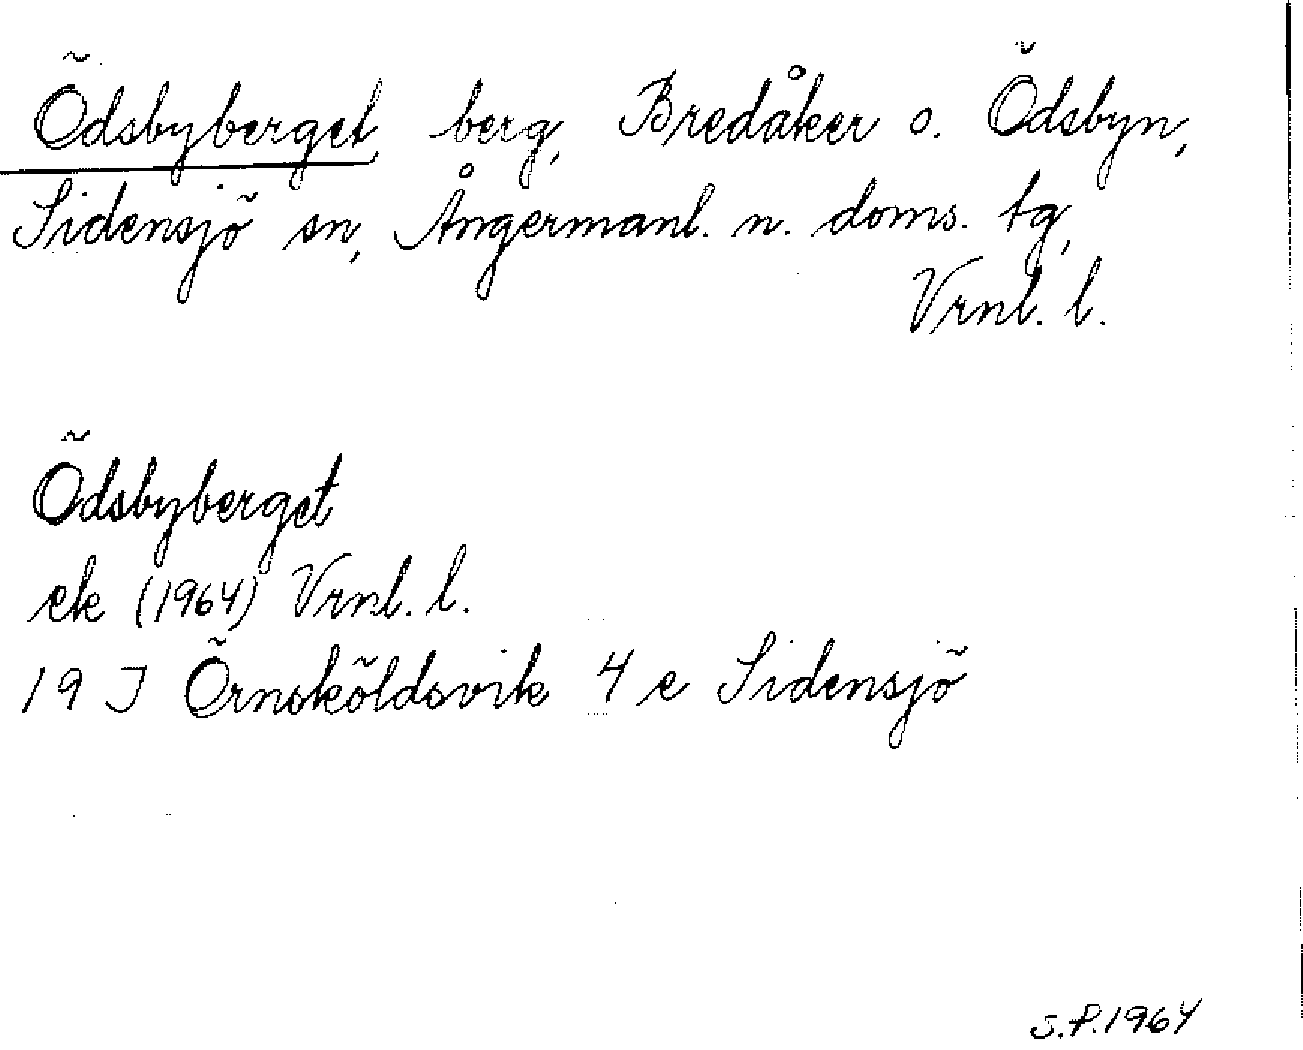 Ödsbyberget, berg, Bredåker o. Ödsbyn,
Sidensjö sn, Ångermanl. n. doms. tg,
Vrnl. l.
Ödsbyberget
ek (1964) Vrnl. l.
19 J Örnsköldsvik 4 e Sidensjö
S.P.1964